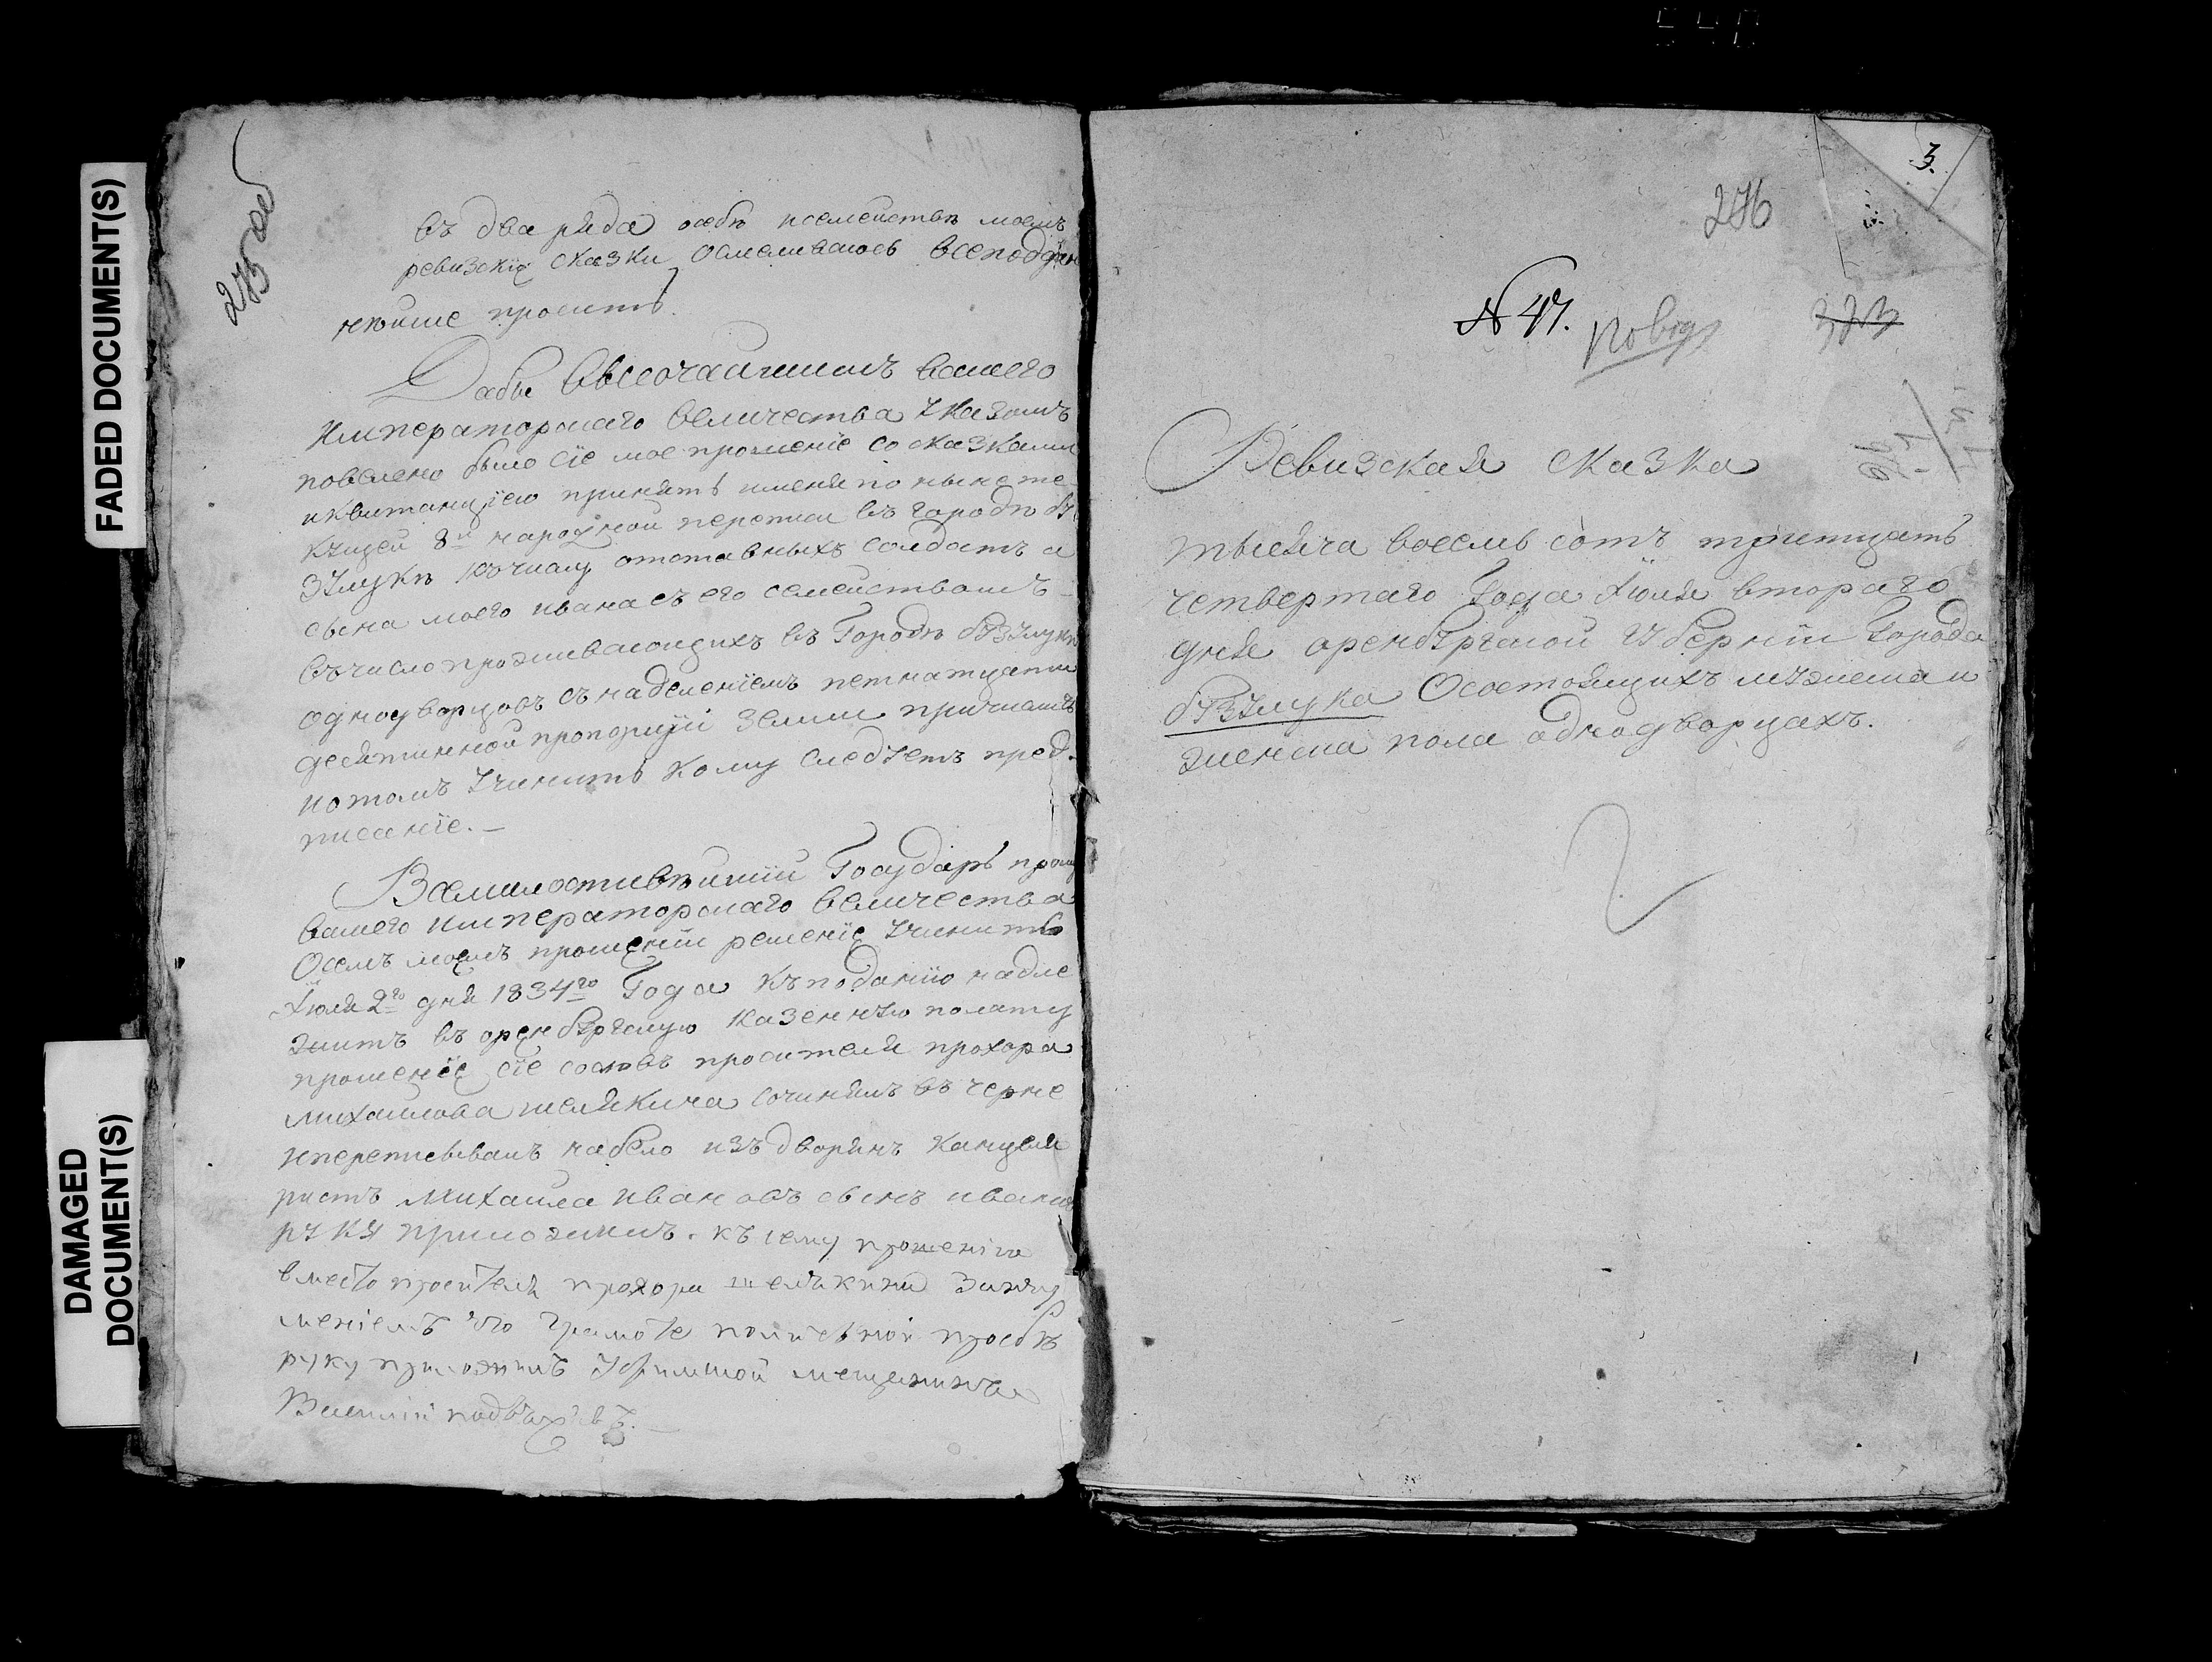 FADED DOCUMENT(S)
DAMAGED
DOCUMENT(S)
275 об
въ два ряда особѣ исемействѣ моемъ
ревизскїя сказки осмеливаюсь всеподдан
нѣйше просить
Дабы Высочайшимъ вашего
императорскаго величества указомъ
повелено было сїе мое прошенїе со сказками
иквитанцїею принять именя по ныне те
кущей 8й народной переписи въ городѣ бу
зулукѣ къчислу отставныхъ солдатъ а
сына моего ивана съ его семействомъ
въчисло проживающихъ въ Городѣ бузулукѣ
однодворцовъ съ наделенїемъ петнатцати
десятинной пропорцїи земли причислить
ипотомъ учинить кому следуетъ пред
писанїе.
Всемилостивѣйшїй Государь прошу
вашего императорскаго величества
Осемъ моемъ прошенїи решенїе учинить
Їюля 2го дня 1834го Года къподанїю надле
житъ въ оренбургскую казенную полату
прошенїе сїе сословъ просителя прохора
михайлова шелякина сочинялъ въ черне
ипереписывалъ набело изъ дворянъ канцеля
ристъ михайла ивановъ сынъ иванов
руку приложилъ. къ сему прошенїю
вместо просителя прохора шелякина За неу
менїемъ его Грамоте по личьной прозбѣ
руку приложилъ Уфимской мещанинъ
Василїй
3.
276
№ 47.
323
Ревизская сказка
тысяча восемь сотъ тритцать
четвертаго Года Їюля втораго
дня оренбургской Губернїи Города
бузулука Осостоящихъ мужеска и
женска пола однодворцахъ.